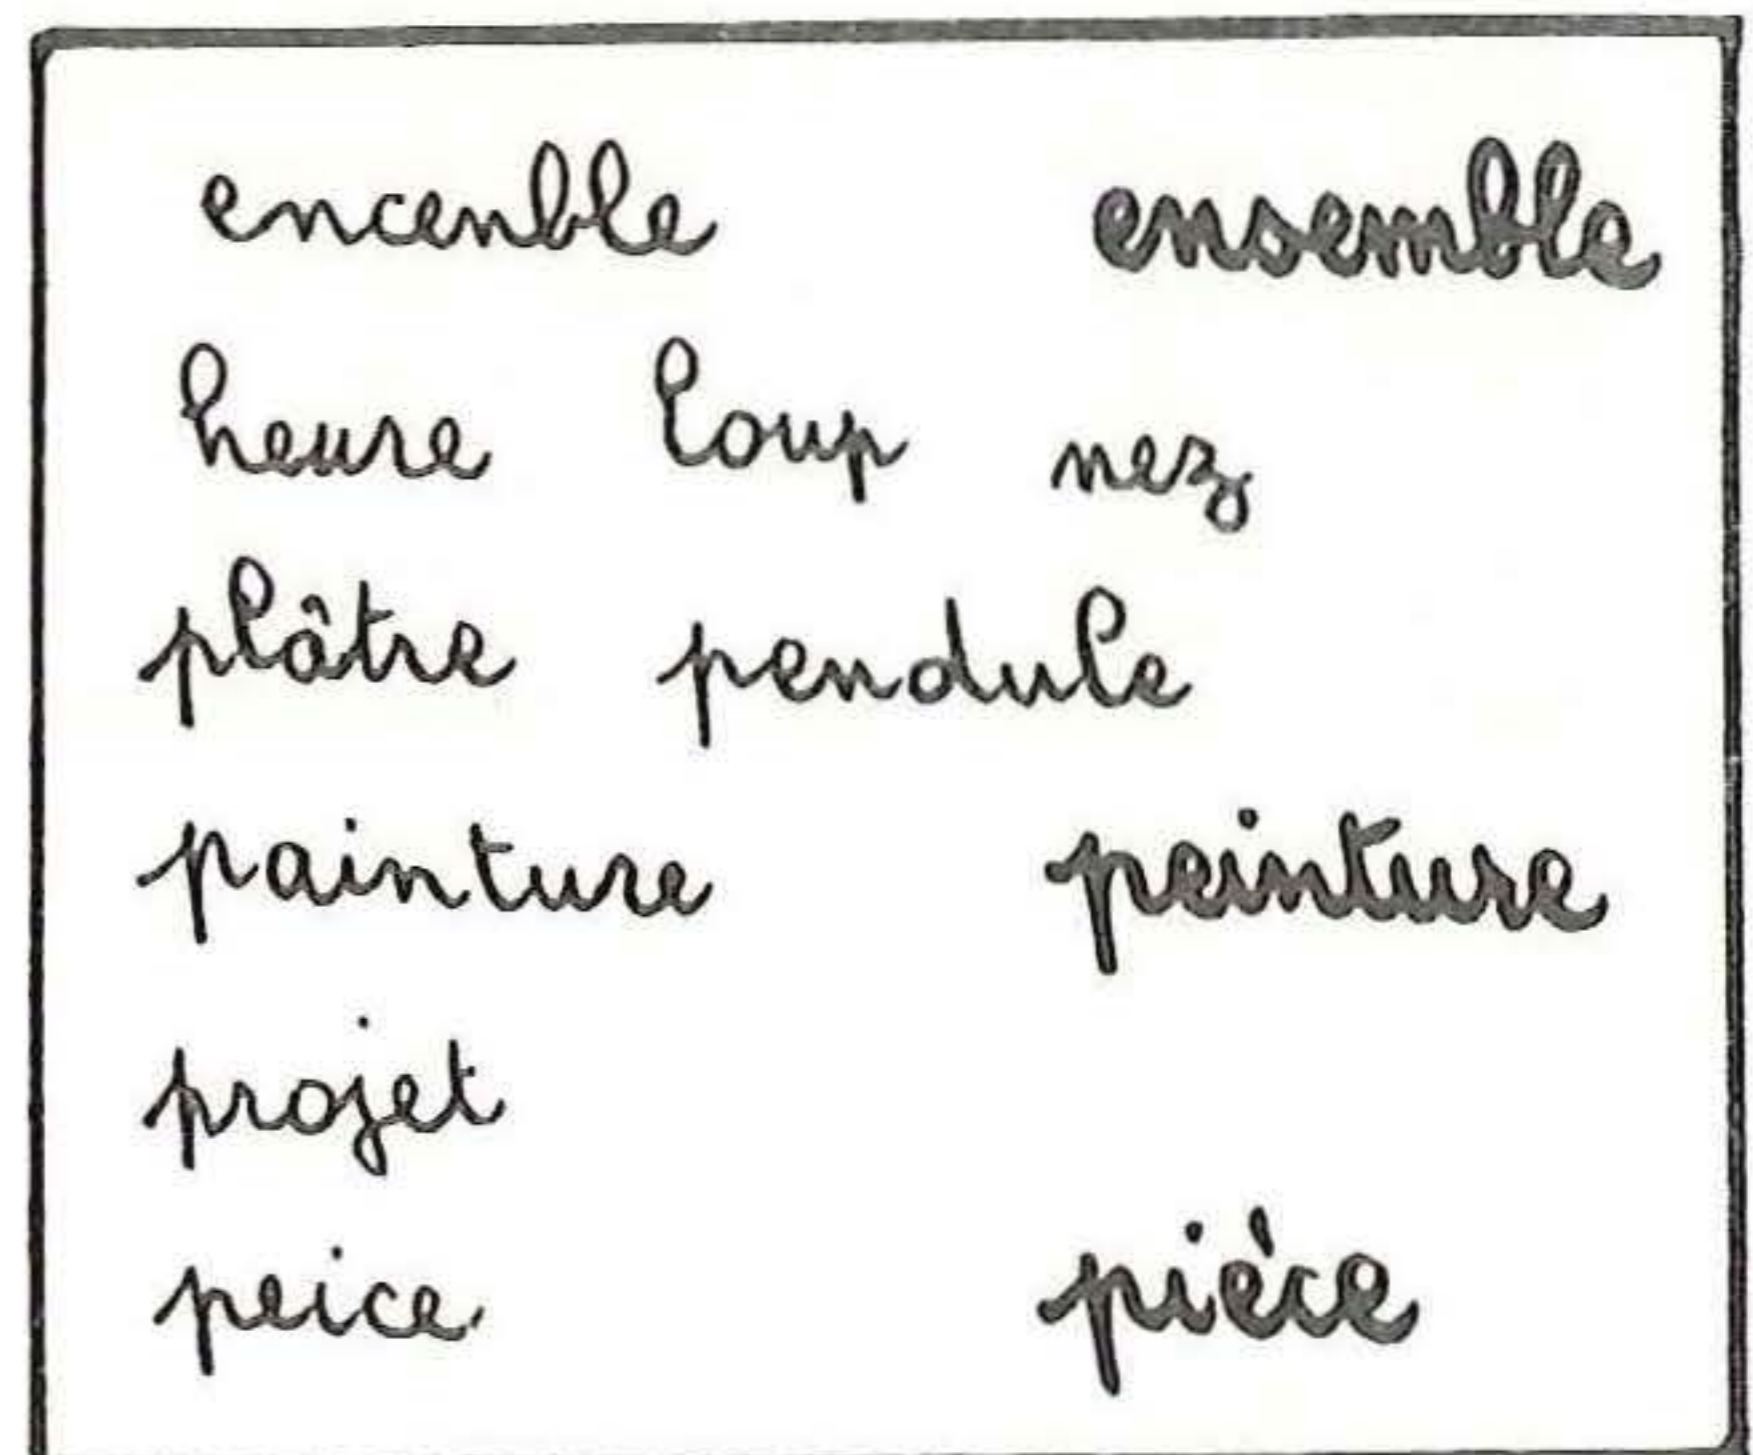 encenble ensemble
heure loup nez
plâtre pendule
painture peinture
projet
peice pièce